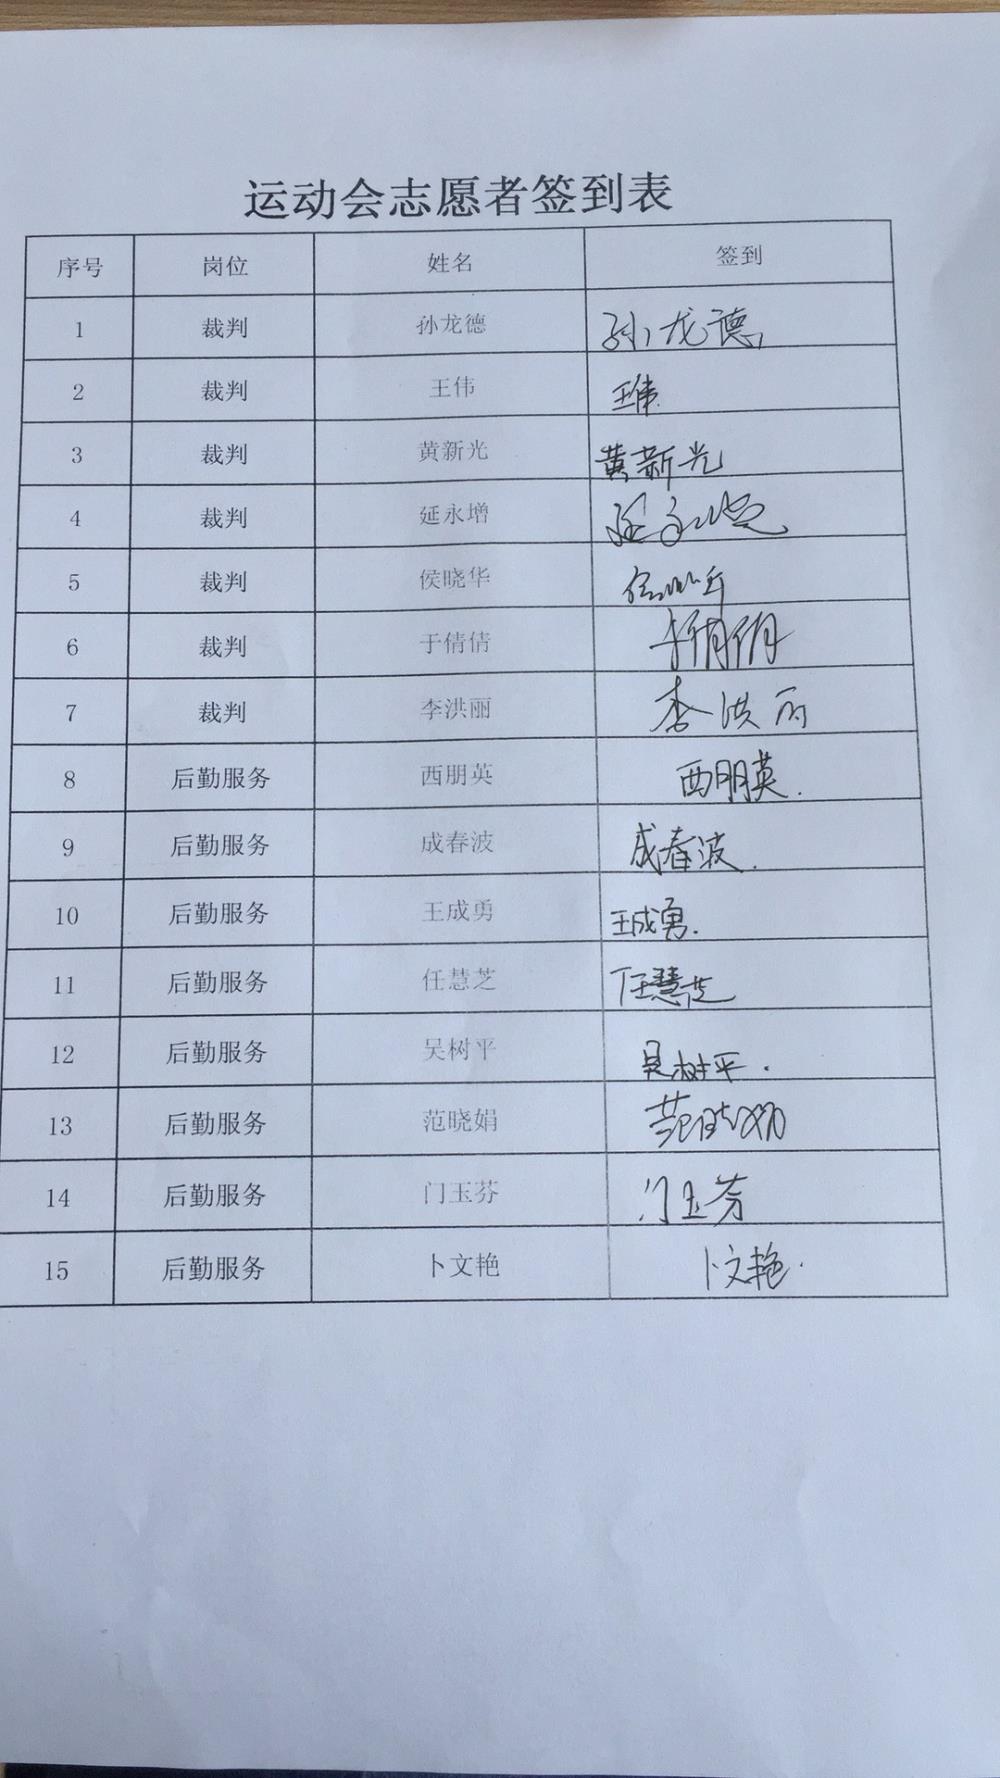 运动会志愿者签到表
序号 岗位 姓名 签到
1 裁判 孙龙德 孙龙德
2 裁判 王伟 王伟
3 裁判 黄新光 黄新光
4 裁判 延永增 延永增
5 裁判 侯晓华 侯晓华
6 裁判 于倩倩 于倩倩
7 裁判 李洪丽 李洪丽
8 后勤服务 西朋英 西朋英.
9 后勤服务 成春波 成春波.
10 后勤服务 王成勇 王成勇.
11 后勤服务 任慧芝 任慧芝
12 后勤服务 吴树平 吴树平.
13 后勤服务 范晓娟 范晓娟
14 后勤服务 门玉芬 门玉芬
15 后勤服务 卜文艳 卜文艳.